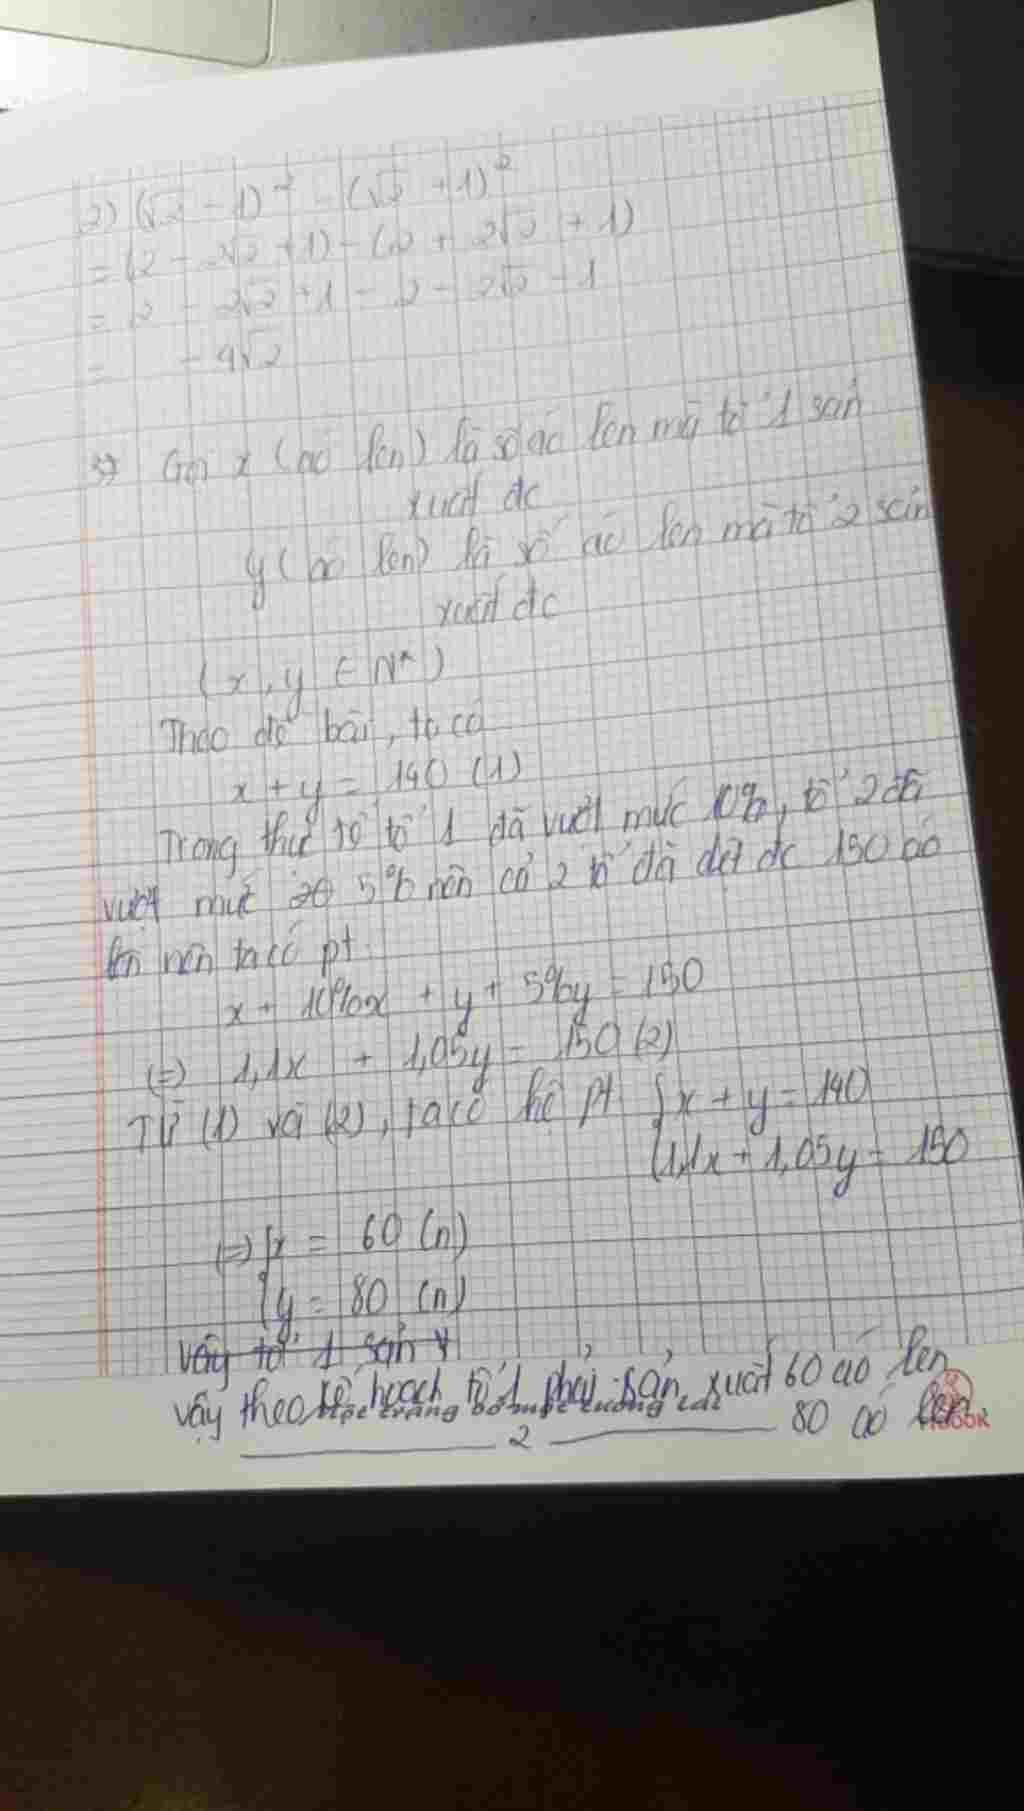 2) (√2 - 1)² - (√2 + 1)²
= (2 - 2√2 + 1) - (2 + 2√2 + 1)
= 2 - 2√2 + 1 - 2 - 2√2 - 1
= - 4√2
3) Gọi x (áo len) là số áo len mà tổ 1 sản
xuất đc
y (áo len) là số áo len mà tổ 2 sản
xuất đc
(x, y ∈ N*)
Theo đề bài, ta có
x + y = 140 (1)
Trong thực tế tổ 1 đã vượt mức 10%, tổ 2 đã
vượt mức 5% nên cả 2 tổ đã dệt đc 150 áo
len nên ta có pt
x + 10%x + y + 5%y = 150
(=) 1,1x + 1,05y = 150 (2)
Từ (1) và (2), ta có hệ pt { x + y = 140
{ 1,1x + 1,05y = 150
(=) { x = 60 (n)
{ y = 80 (n)
Vậy tổ 1 sản
Vậy theo kế hoạch tổ 1 phải sản xuất 60 áo len
2 80 áo len